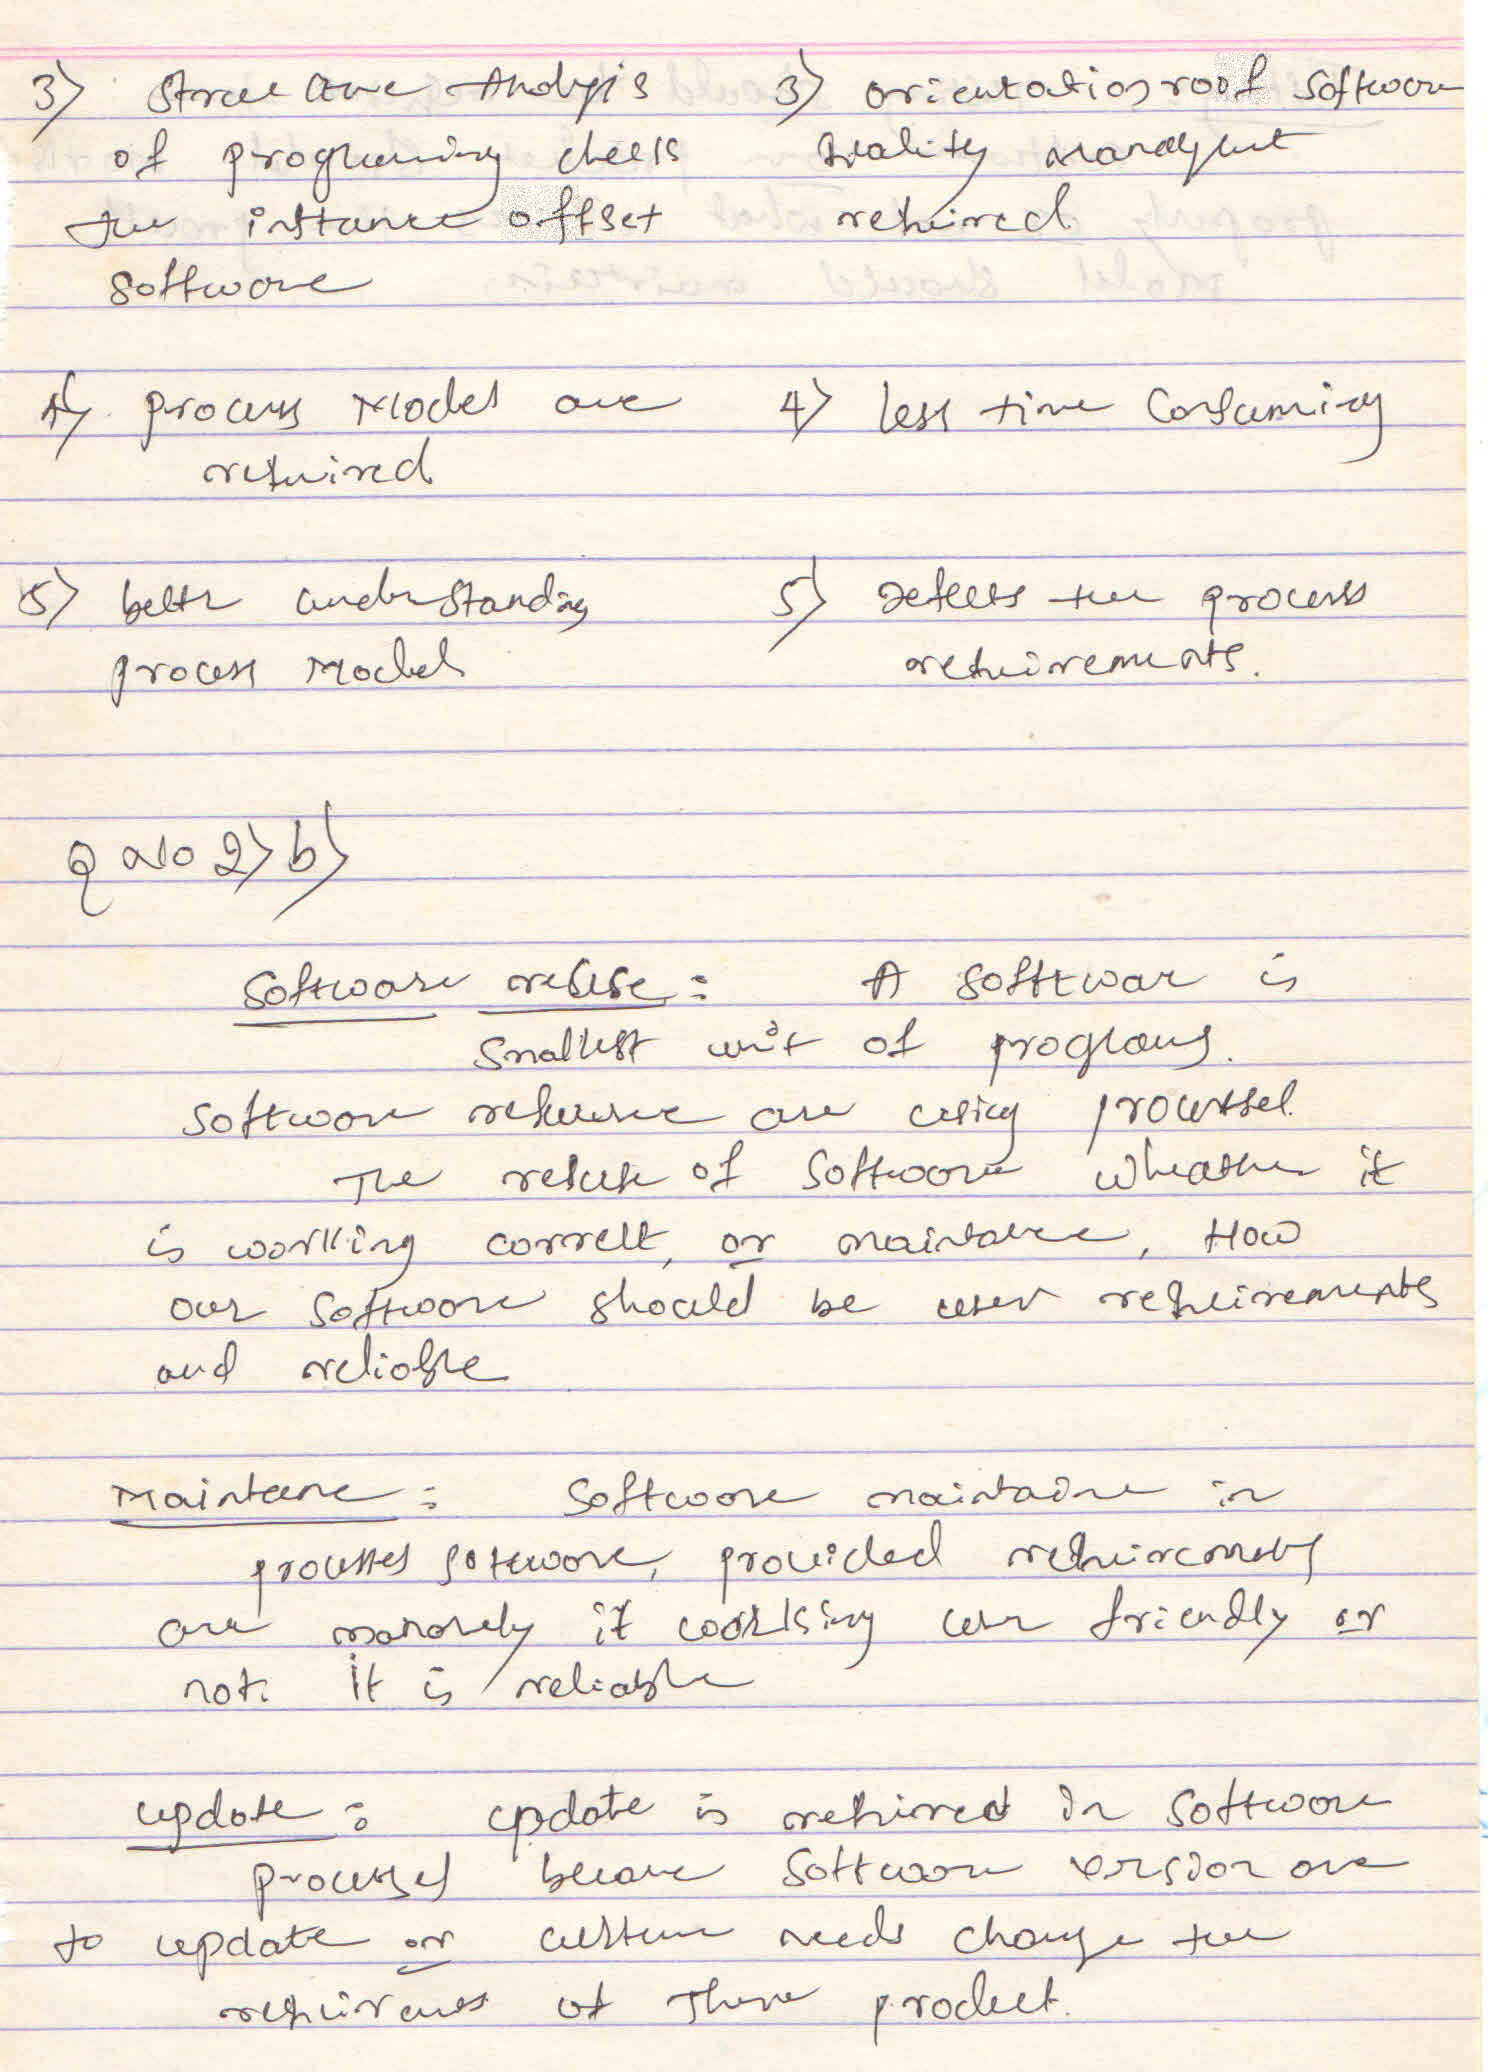 3) Structure Analysis
of programing checks
the instance offset
software
3) orientation roof software
quality
required.
4) process Model are
required.
4) less time Consuming
5) better understanding
process Model
5) Defects the process
requirements.
Q No 2) b)
Software reuse : A softtwar is
smallest unit of programs.
Software are using processel.
The reuse of software wheather it
is working corrett, or maintance, How
our software should be user requirements
and reliable
Maintance : Software maintaine in
processes software, provided requirements
are it working user friendly or
not. It is reliable
update : update is required in software
processes because software version are
to update or needs change the
of There product.